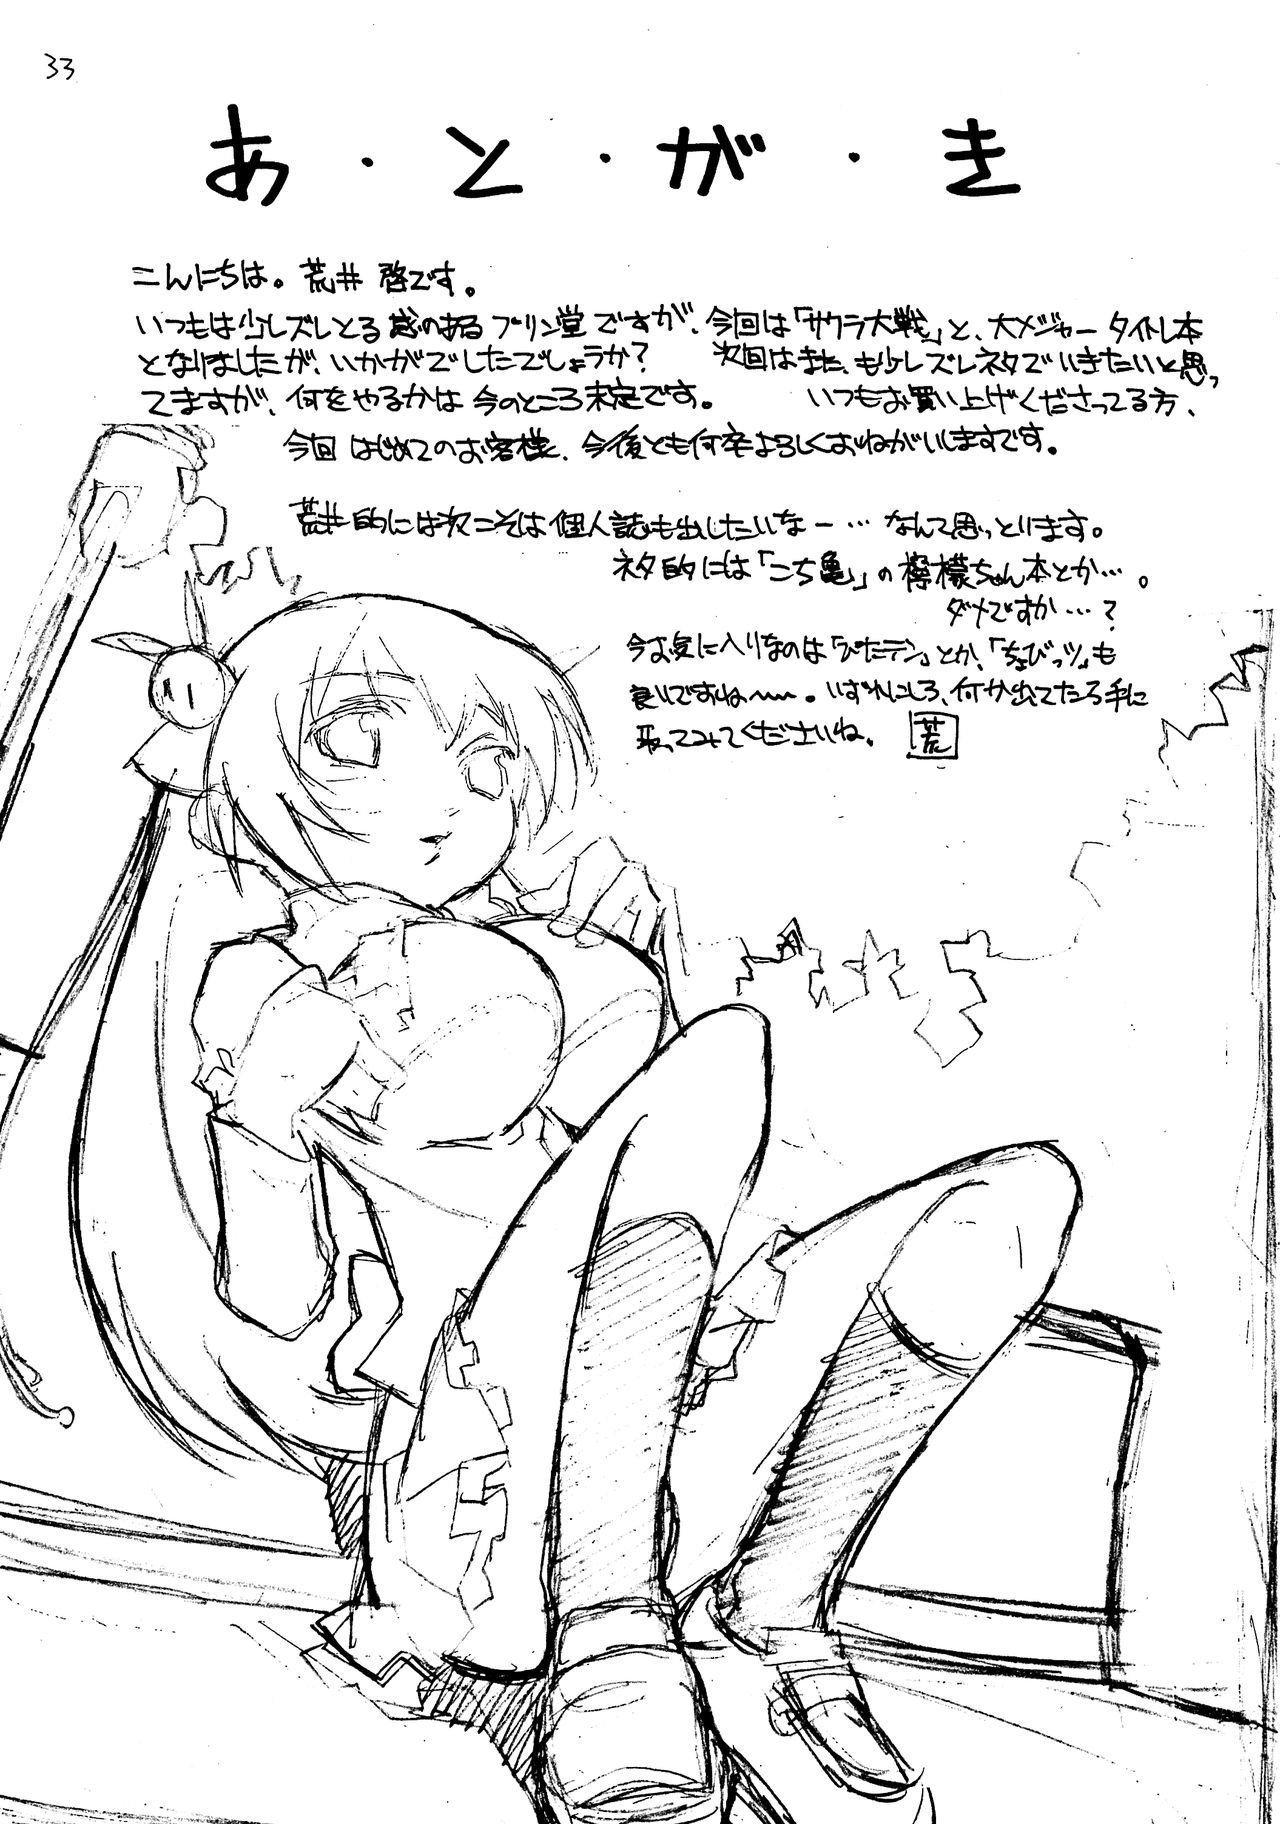 33
あ・と・が・き
こんにちは。荒井 啓です。
いつもは少しズレとる感のあるプリン堂ですが、今回は「サクラ大戦」と、大メジャータイトル本
となりましたが、いかがでしたでしょうか? 次回はまた、も少しズレネタでいきたいと思っ
てますが、何をやるかは今のところ未定です。 いつもお買い上げくださってる方、
今回はじめてのお客様と、今後とも何卒よろしくおねがいしますです。
荒井的には次こそは個人誌も出したいなー…なんて思っとります。
ネタ的には「こち亀」の檸檬ちゃん本とか…。
ダメですか…?
今お気に入りなのは「ぴたテン」とか、「ちょびっツ」も
良いですね〜〜。いずれにしろ、何か出てたら手に
取ってみてくださいね。 荒